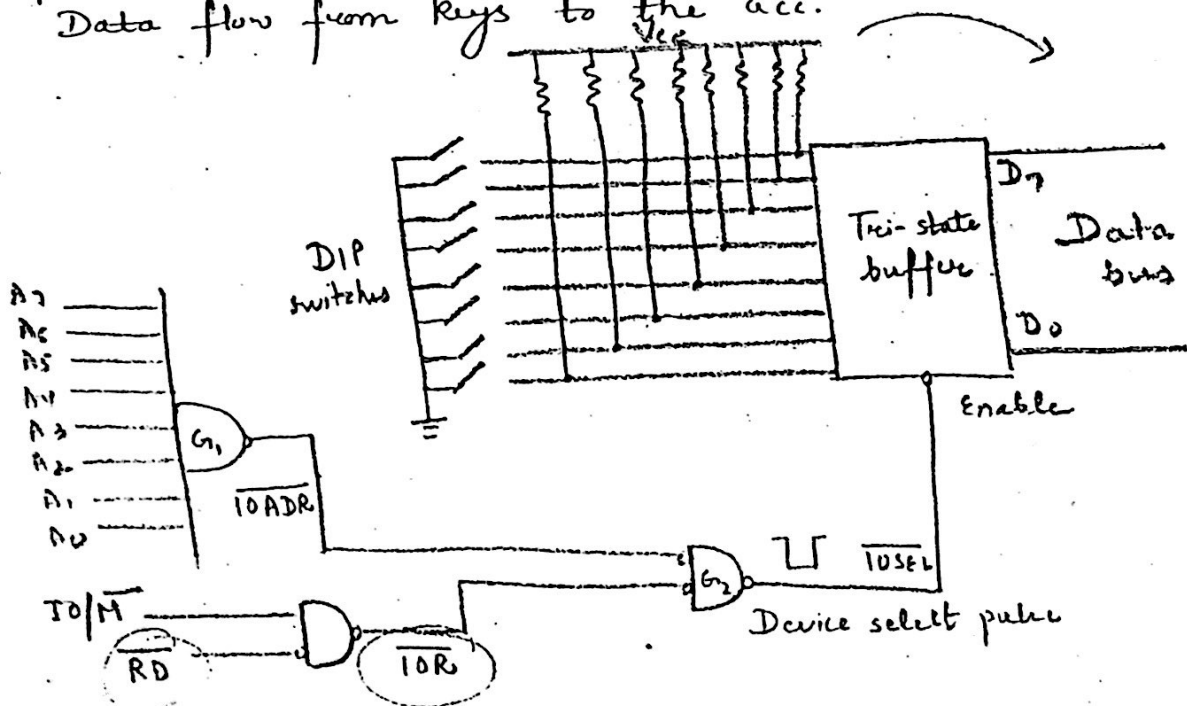 Data flow from keys to the acc.
Vcc
DIP
switches
Tri-state
buffer
D7
Data
bus
D0
Enable
A7
A6
A5
A4
A3
A2
A1
A0
G1
IOADR
IO/M
RD
IOR
G2
IOSEL
Device select pulse